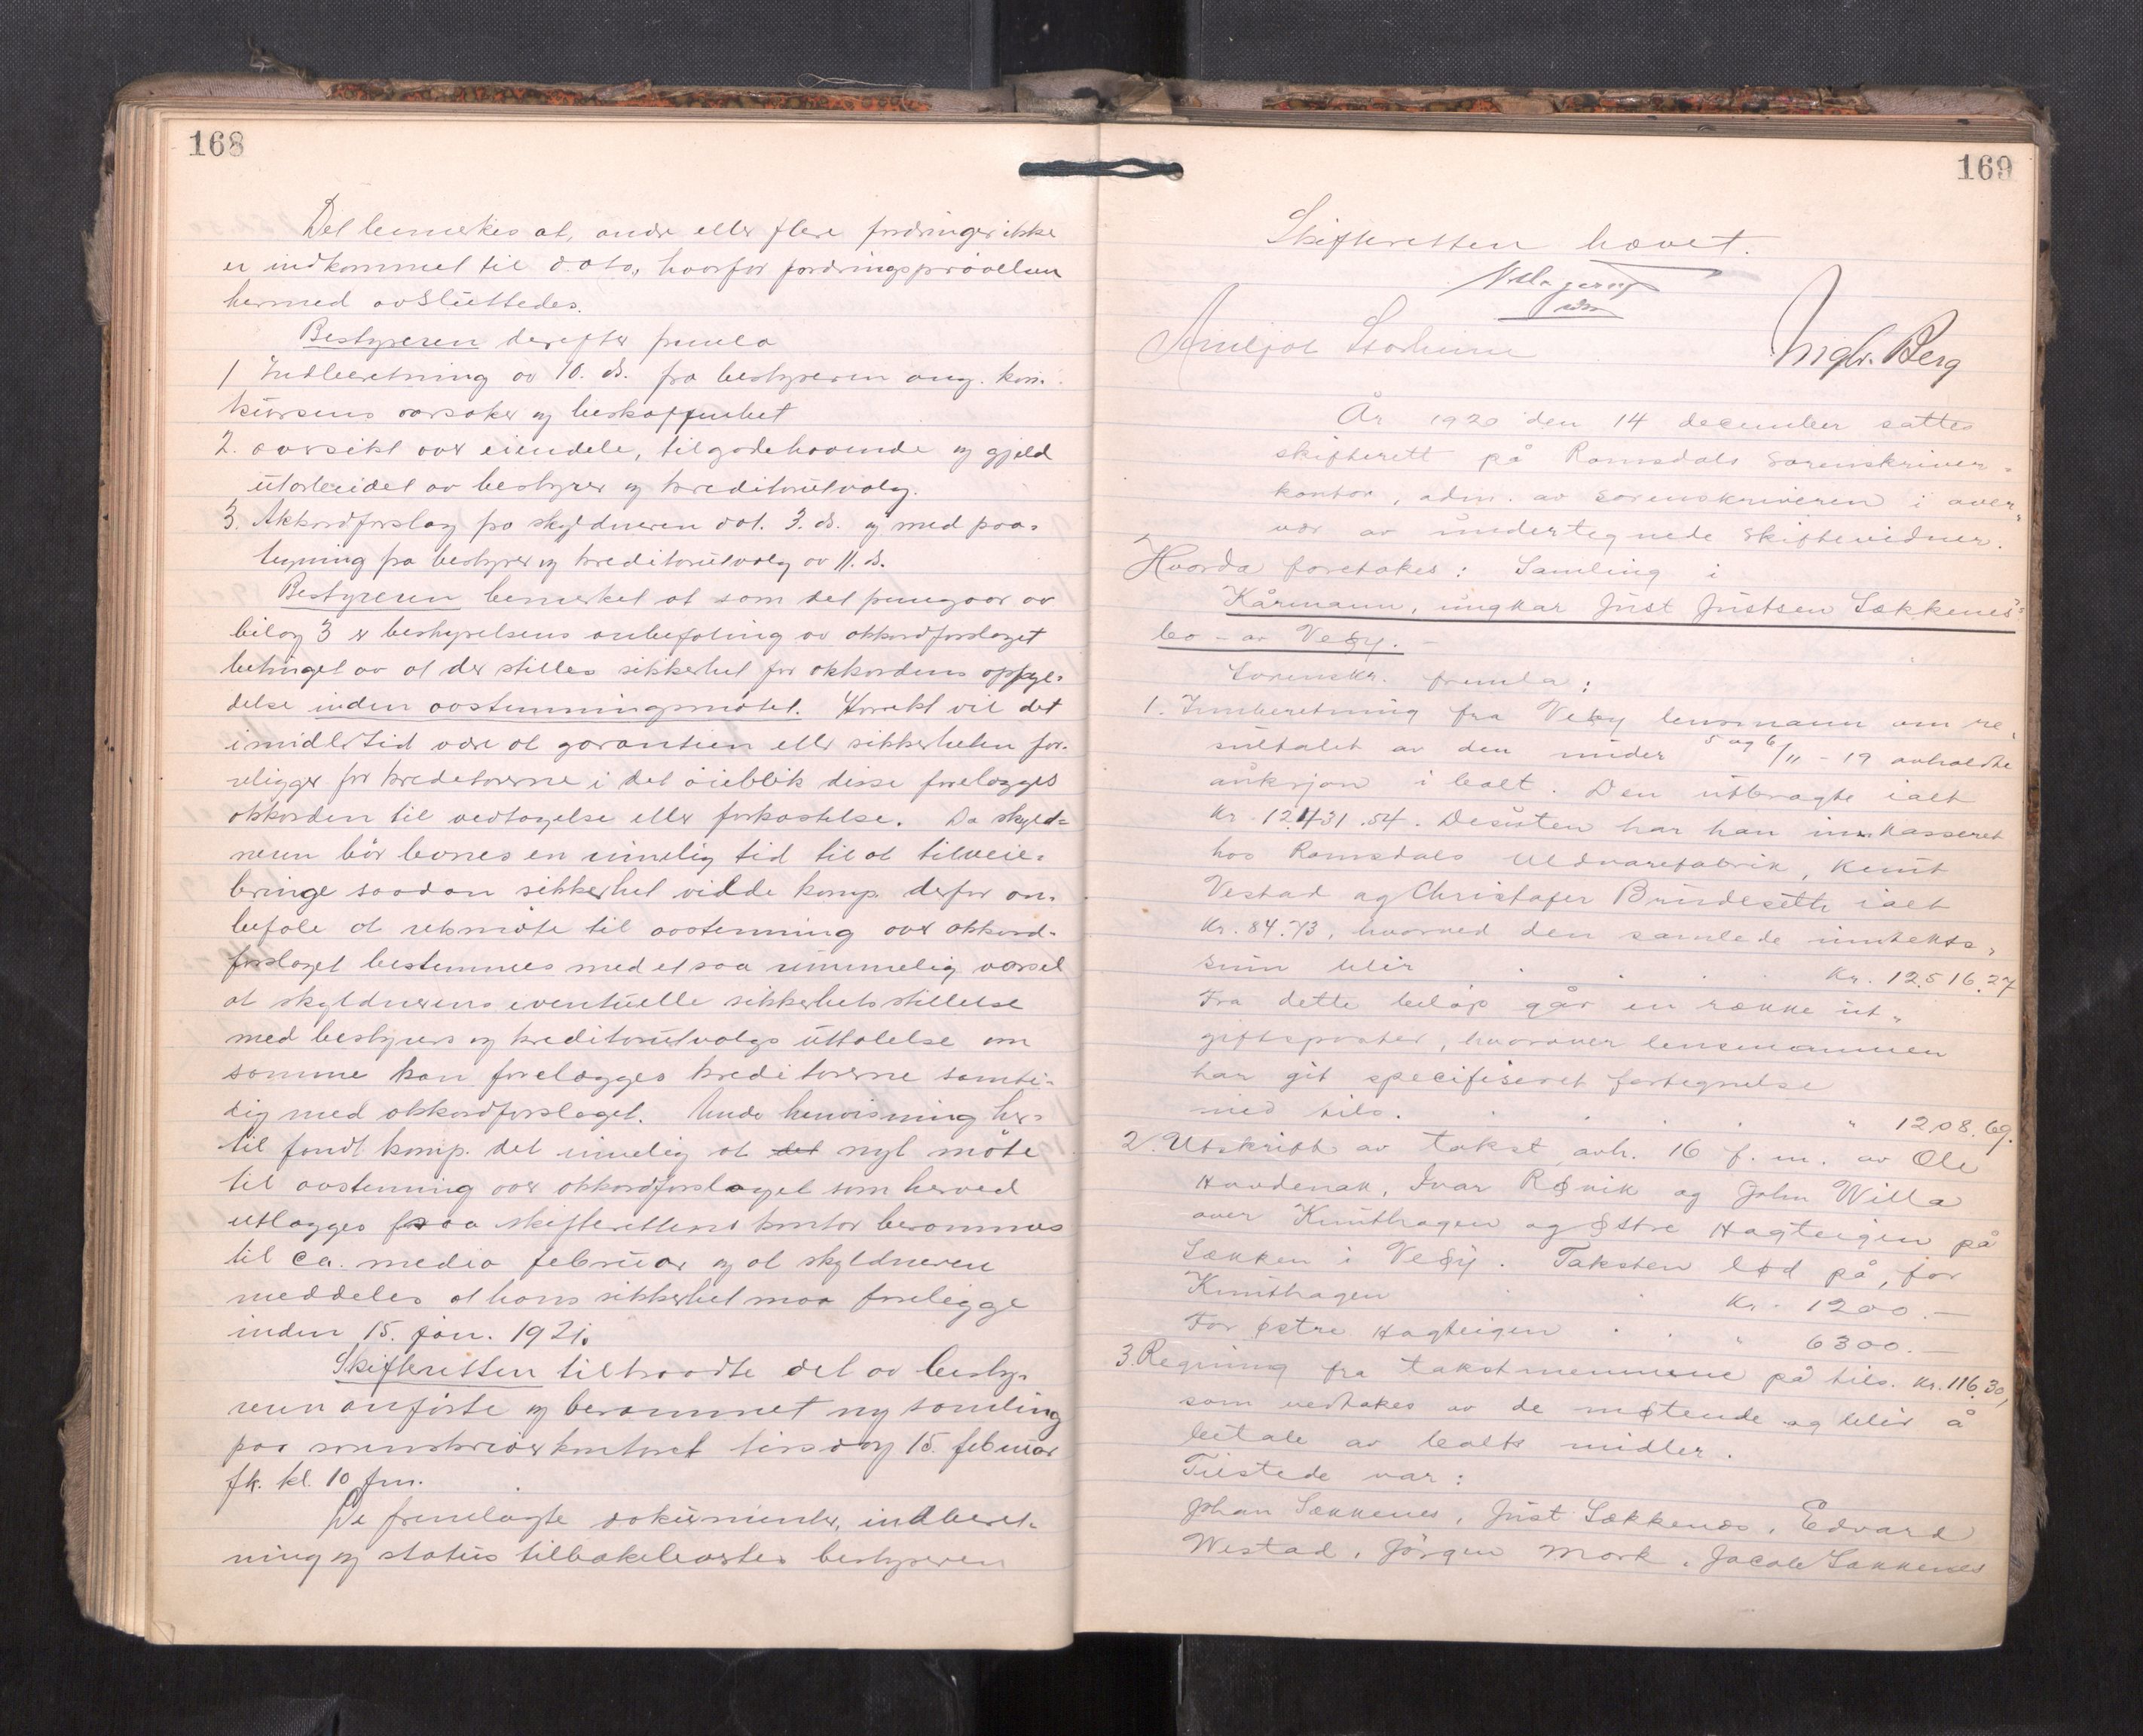 168
Det bemerkes at andre eller flere fordringer ikke
er indkommet til dato, hvorfor fordringsprøvelsen
hermed avsluttedes.
Bestyreren derefter fremla
1 Indberetning av 10. ds. fra bestyreren ang. kon-
kursens aarsaker og beskaffenhet
2. oversikt over eiendele, tilgodehavende og gjeld
utarbeidet av bestyrer og kreditorutvalg.
3. Akkordforslag fra skyldneren dat. 3. ds. og med paa-
tegning fra bestyrer og kreditorutvalg av 11. ds.
Bestyreren bemerket at som det fremgaar av
bilag 3 er bestyrelsens anbefaling av akkordforslaget
betinget av at der stilles sikkerhet for akkordens opfyl-
delse inden avstemningsmøtet. Korrekt vil det
imidlertid være at garantien eller sikkerheten for-
religger for kreditorerne i det øieblik disse forelægges
akkorden til vedtagelse eller forkastelse. Da skyld-
neren bør levnes en rimelig tid til at tilveie-
bringe saadan sikkerhet vilde komp. derfor an-
befale at retsmøte til avstemning over akkord-
forslaget bestemmes med et saa rummelig varsel
at skyldnerens eventuelle sikkerhetsstillelse
med bestyrers og kreditorutvalgs uttalelse om
samme kan forelægges kreditorerne samti-
dig med akkordforslaget. Under henvisning her-
til fandt komp. det rimelig at det nyt møte
til avstemning over akkordforslaget som herved
utlægges paa skifterettens kontor berammes
til ca. medio februar og at skyldneren
meddeles at hans sikkerhet maa foreligge
inden 15. jan. 1921.
Skifteretten tiltraadte det av besty-
reren anførte og berammet ny samling
paa sorenskriverkontoret tirsdag 15. februar
fk. kl. 10 fm.
De fremlagte dokumenter, indberet-
ning og status tilbakelevertes bestyreren
169
Skifteretten hævet.
Ingbr. Berg
År 1920 den 14 december sattes
skifterett på Romsdals sorenskriver-
kontor, adm. av sorenskriveren i over-
vær av undertegnede skiftevidner.
Hvorda foretokes: Samling i
Kårmann, ungkar Just Justsen Sækkenes'
bo - av Veøy. -
Sorenskr. fremla:
1. Innberetning fra Veøy lensmann om re-
sultatet av den under 5 og 6/11 - 19 avholdte
auksjon i boet. Den utbragte ialt
Kr. 12.431.54. Desuten har han innkasseret
hos Romsdals Uldvarefabrik, Knut
Vestad og Christofer Brudesetth ialt
Kr. 84.73, hvorved den samlede inntekts-
sum blir . . . Kr. 12.516.27
Fra dette beløp går en række ut-
giftsposter, hvorover lensmannen
har git specifiseret fortegnelse
med tils. . . . " 1208.69.
2. Utskrift av takst avh. 16 f. m. av Ole
Hovdenak, Ivar Røvik og John Willa
over Knuthagen og Østre Hagteigen på
Sækken i Veøy. Taksten lød på, for
Knuthagen . . Kr. 1200.—
For østre Hagteigen . . " 6300.—
3. Regning fra takstmennene på tils. Kr. 116.30,
som vedtakes av de møtende og blir å
betale av boets midler.
Tilstede var:
Johan Sækkenes, Just Sækkenes, Edvard
Westad, Jørgen Mork, Jacob Sækkenes